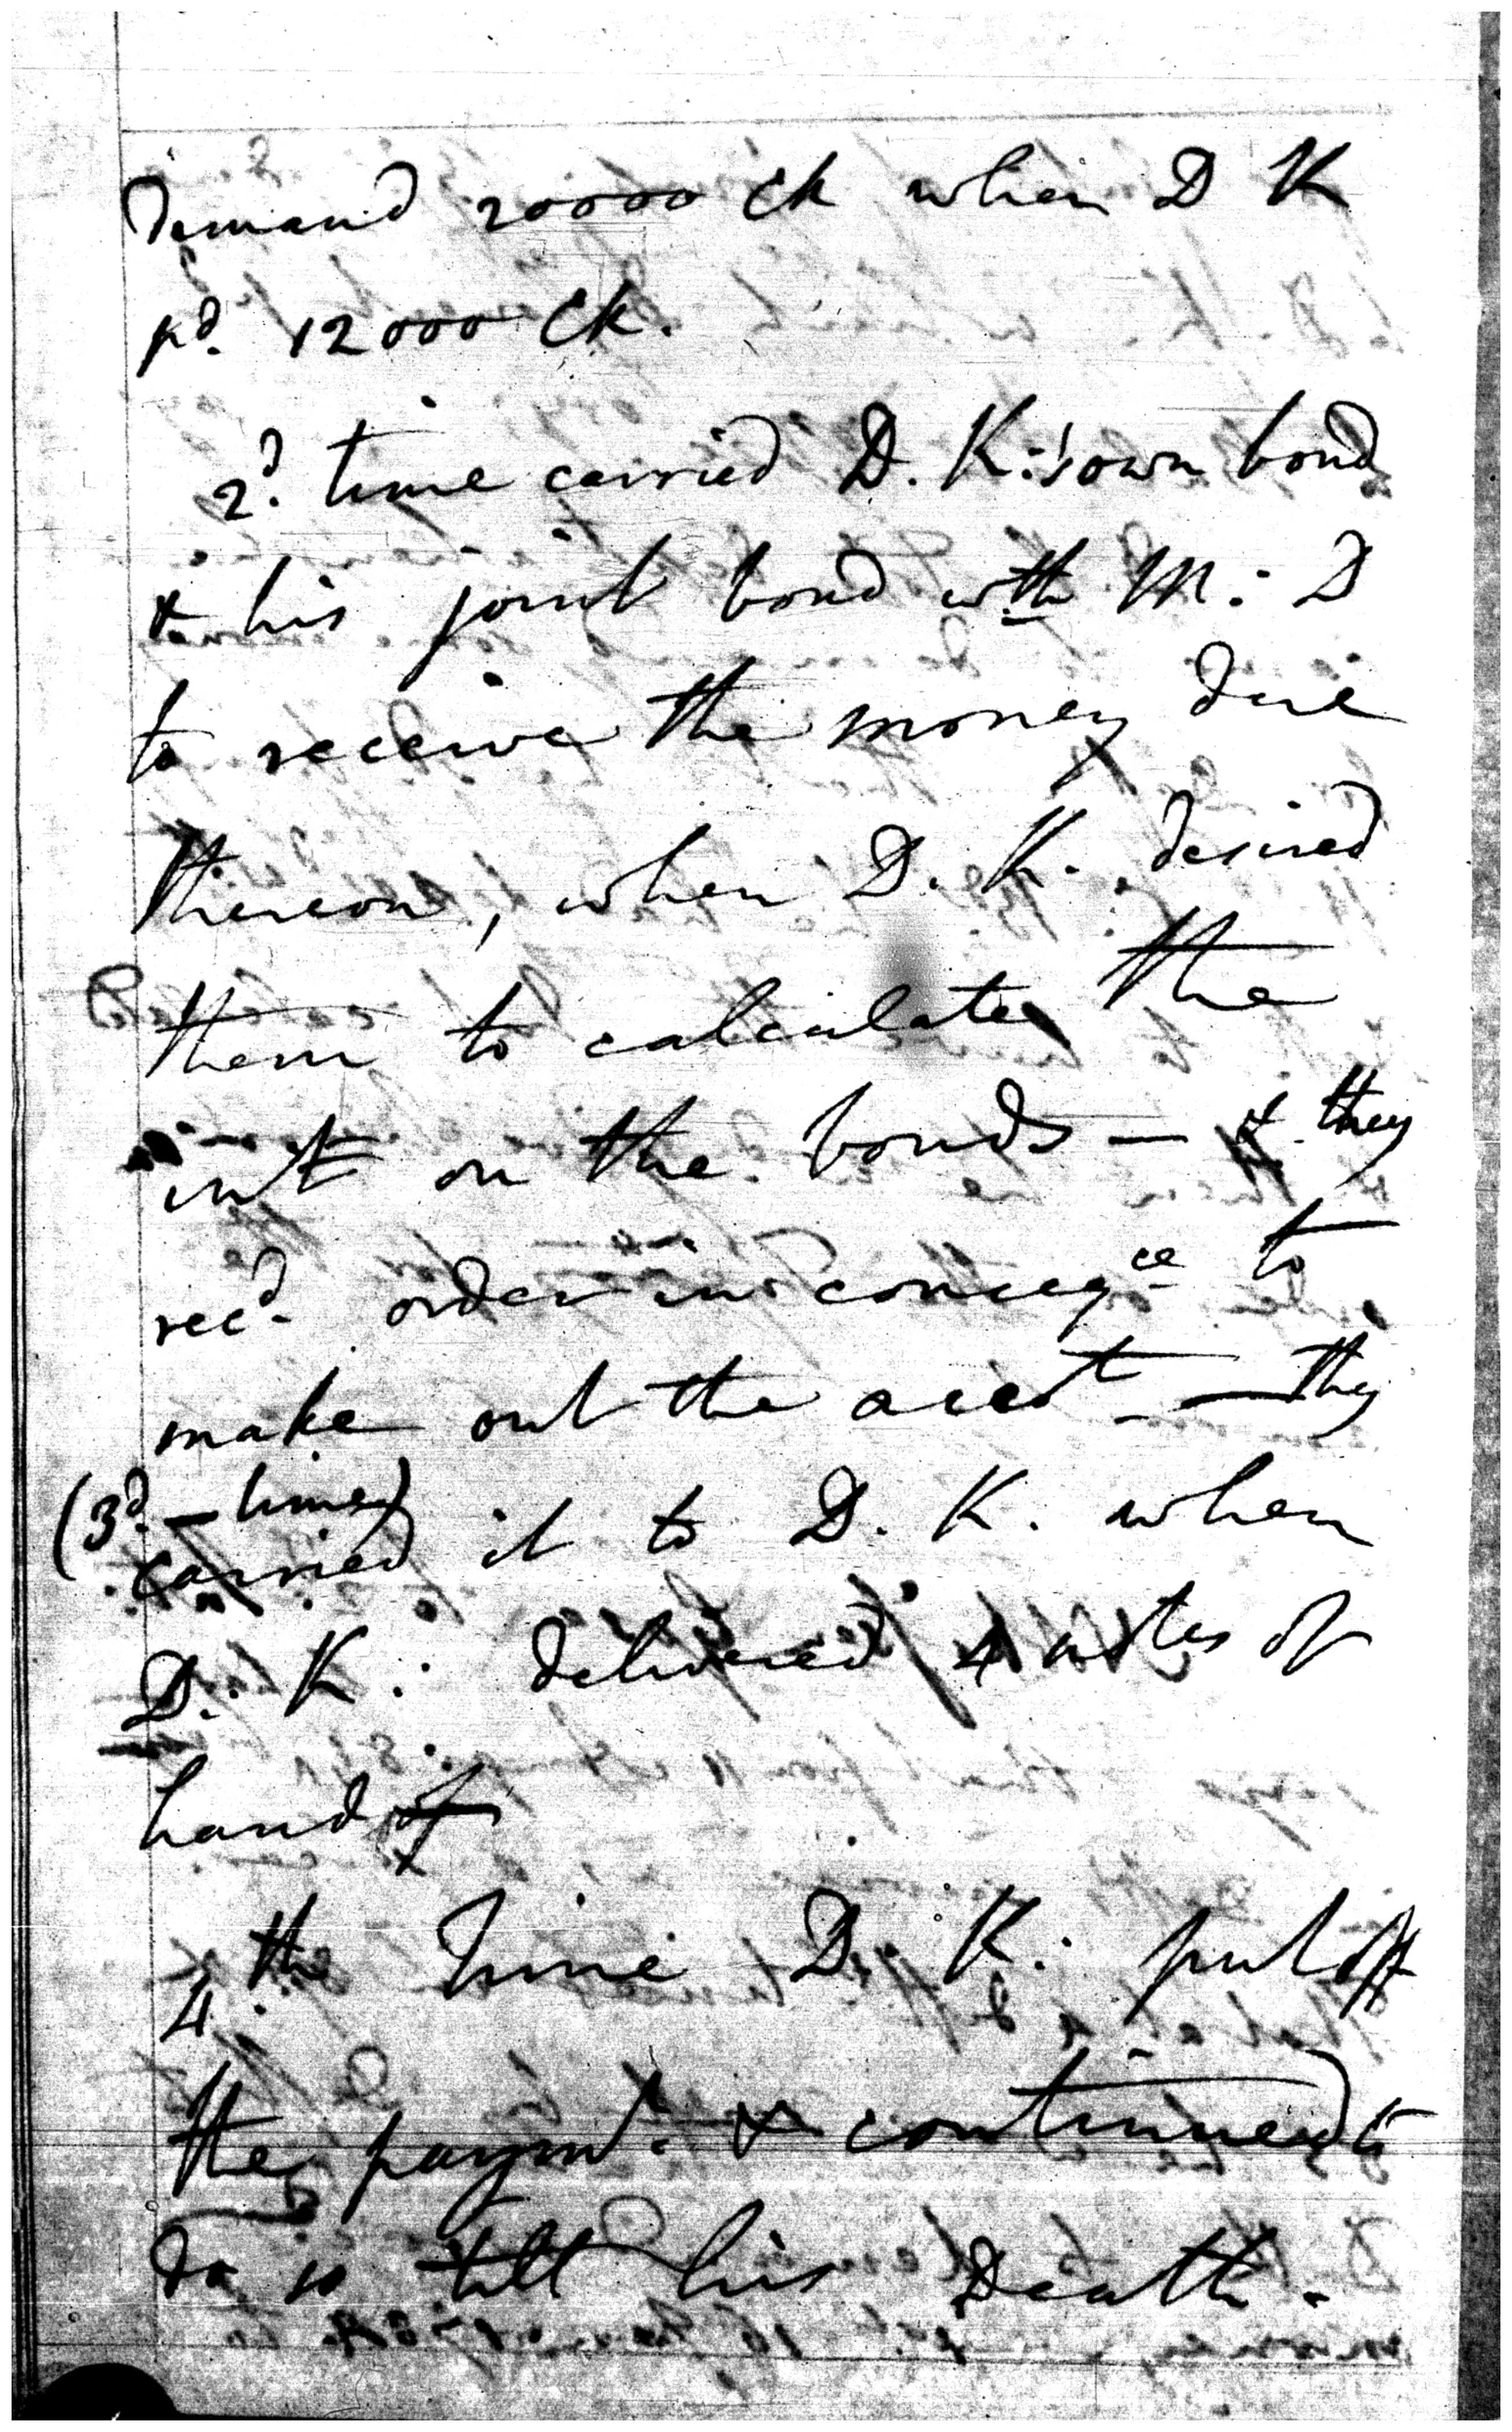 demand 20000 Ck when D K
pd. 12000 Ck.
2d. time carried D. K:'s own bond
& his joint bond wth M: D
to receive the money due
thereon, when D. K. desired
them to calculate the
int on the bonds — & they
recd. order in conseqce to
make out the acct — they
(3d. — time)
carried it to D. K. when
D. K: delivered 4 notes of
hand
4.th time D. K: put off
the paymt. & continued to
do so till his Death.